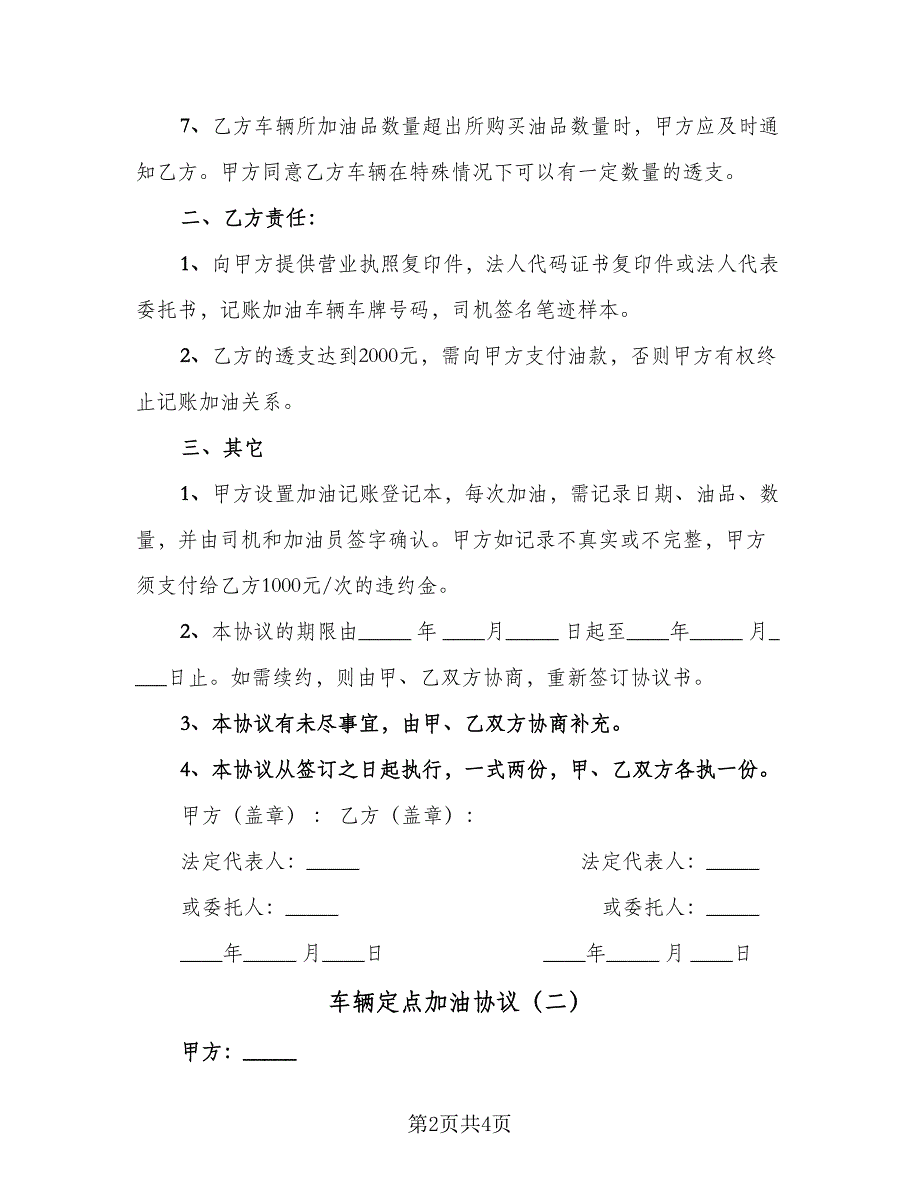 7、乙方车辆所加油品数量超出所购买油品数量时，甲方应及时通
知乙方。甲方同意乙方车辆在特殊情况下可以有一定数量的透支。
二、乙方责任：
1、向甲方提供营业执照复印件，法人代码证书复印件或法人代表
委托书，记账加油车辆车牌号码，司机签名笔迹样本。
2、乙方的透支达到2000元，需向甲方支付油款，否则甲方有权终
止记账加油关系。
三、其它
1、甲方设置加油记账登记本，每次加油，需记录日期、油品、数
量，并由司机和加油员签字确认。甲方如记录不真实或不完整，甲方
须支付给乙方1000元/次的违约金。
2、本协议的期限由_____ 年 ____月_____ 日起至____年_____ 月_
___日止。如需续约，则由甲、乙双方协商，重新签订协议书。
3、本协议有未尽事宜，由甲、乙双方协商补充。
4、本协议从签订之日起执行，一式两份，甲、乙双方各执一份。
甲方（盖章）： 乙方（盖章）：
法定代表人：_____ 法定代表人：_____
或委托人：_____ 或委托人：_____
____年_____ 月____日 ____年_____ 月 ____日
车辆定点加油协议（二）
甲方：_____
第2页共4页